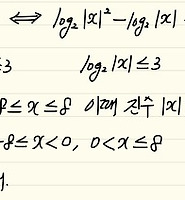 ⟺ log₂|x|² - log₂|x|
≤3 log₂|x| ≤ 3
8 ≤ x ≤ 8 이때 진수 |x|
-8 ≤ x < 0, 0 < x ≤ 8